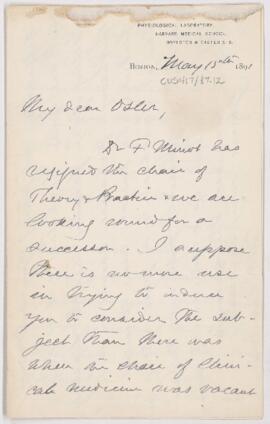 PHYSIOLOGICAL LABORATORY,
HARVARD MEDICAL SCHOOL,
BOYLSTON & EXETER STS.
BOSTON, May 15th 1891
CUS417/87.12
My dear Osler,
Dr F. Minot has
resigned the chair of
Theory & Practice & we are
looking round for a
successor. I suppose
there is no more use
in trying to induce
you to consider the sub-
ject than there was
when the chair of Clini-
cal medicine was vacant